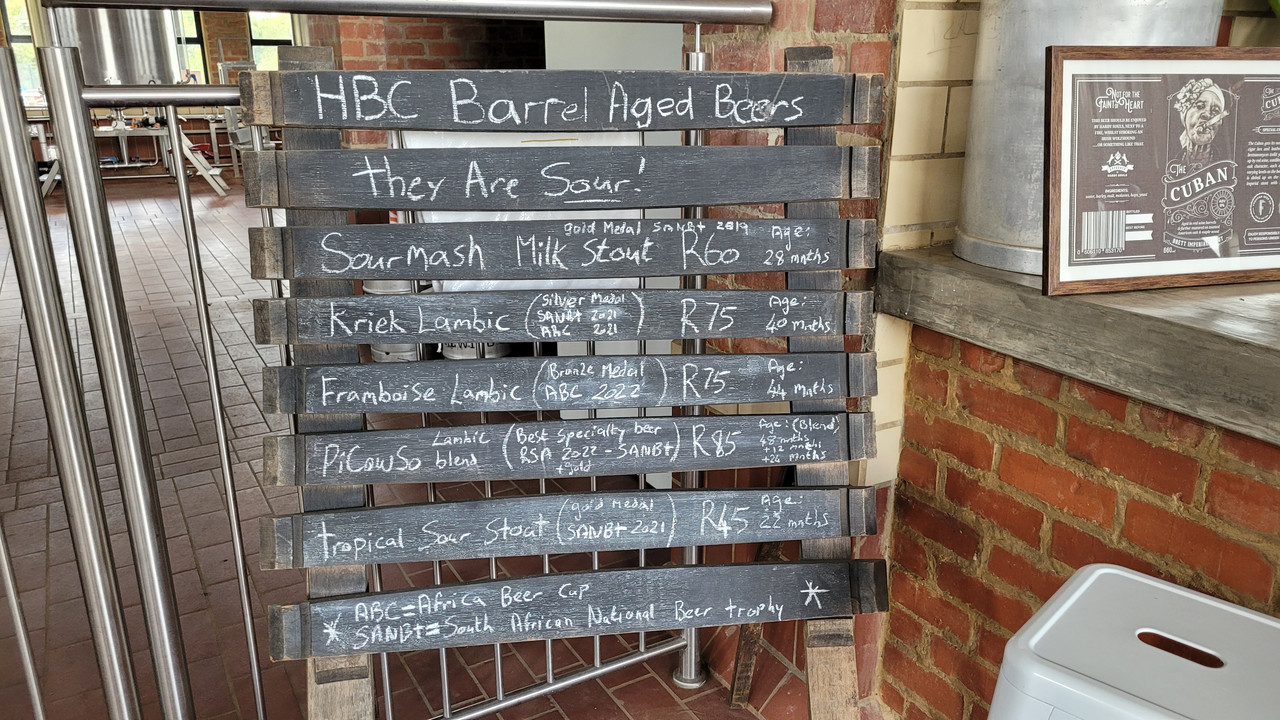 HBC Barrel Aged Beers
they Are Sour!
gold Medal SANBt 2019
Sour mash Milk Stout R60
Age:
28 mnths
Kriek Lambic (Silver Medal
SANBt 2021
ABC 2021) R75
Age:
40 mnths
Framboise Lambic (Bronze Medal
ABC 2022) R75
Age:
44 mnths
PiCowSo Lambic
blend (Best Specialty beer
RSA 2022 - SANBt)
+gold R85
Age: (Blend)
48 mnths
+12 mnths
+24 mnths
tropical Sour Stout (gold Medal
SANBt 2021) R45
Age:
22 mnths
ABC=Africa Beer Cup
SANBt=South African National Beer trophy
NOT FOR THE
FAINT OF HEART
THIS BEER SHOULD BE ENJOYED
THE
CUBAN
BRETT IMPERIAL
INGREDIENTS